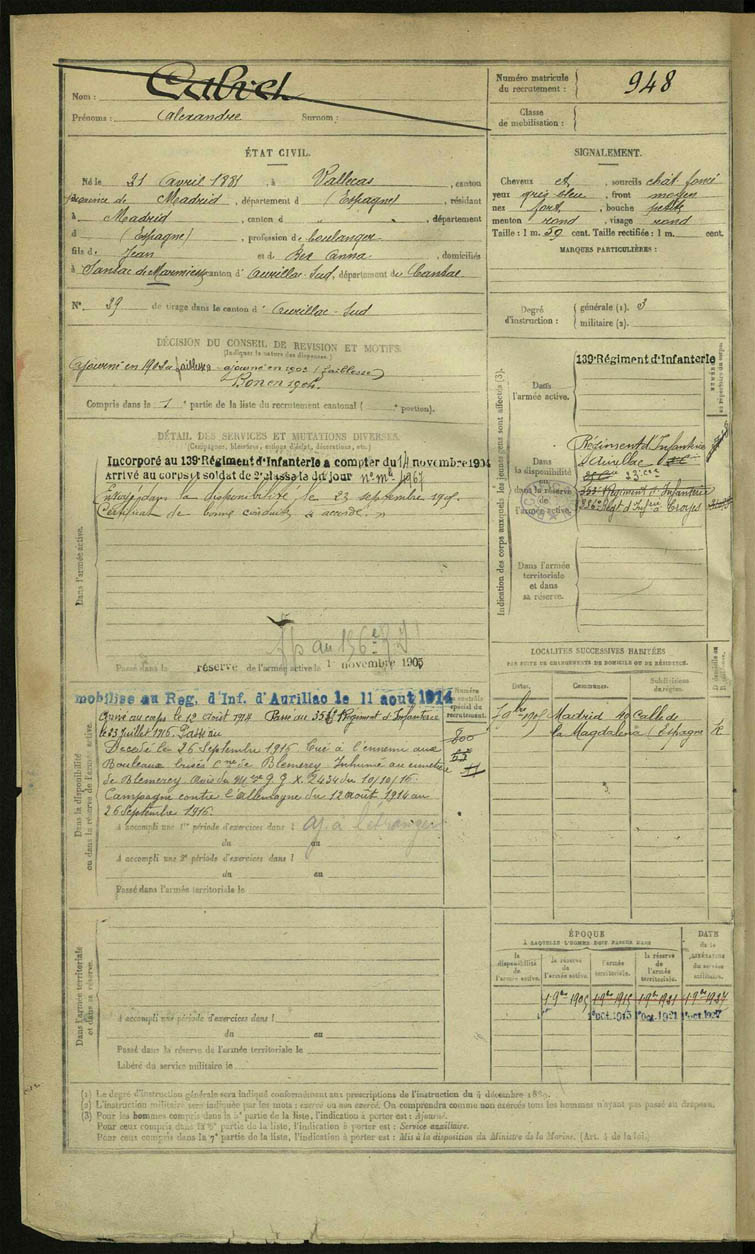 Nom :
Prénoms : Alexandre Surnom :
Numéro matricule du recrutement : 948
Classe de mobilisation :
ÉTAT CIVIL.
Né le 21 avril 1881, à Vallecas, canton
province de Madrid, département d (Espagne), résidant
à Madrid, canton d " " , département
d (Espagne), profession de boulanger
fils de Jean et de Bex Anna, domiciliés
à Sansac de Marmiesse canton d'Aurillac-Sud, département du Cantal
N° 29 de tirage dans le canton d'Aurillac-Sud
SIGNALEMENT.
Cheveux et , sourcils chât foncé
yeux gris bleu, front moyen
nez fort, bouche petite
menton rond, visage rond
Taille : 1 m. 59 cent. Taille rectifiée : 1 m. cent.
MARQUES PARTICULIÈRES :
Degré d'instruction : générale (1). 3
militaire (2).
DÉCISION DU CONSEIL DE REVISION ET MOTIFS.
(Indiquer la nature des dispenses.)
Ajourné en 1902 faiblesse - ajourné en 1903 (faiblesse)
Bon en 1904
Compris dans la 1e partie de la liste du recrutement cantonal ( portion).
DÉTAIL DES SERVICES ET MUTATIONS DIVERSES.
(Campagnes, blessures, actions d'éclat, décorations, etc.)
Dans l'armée active.
Incorporé au 139e Régiment d'Infanterie à compter du 14 novembre 1904
Arrivé au corps et soldat de 2e classe le dit jour n° mle 4967
Envoyé dans la disponibilité le 23 septembre 1905.
Certificat de bonne conduite accordé.
Ap au 136e
Passé dans la réserve de l'armée active le 1 novembre 1905
Indication des corps auxquels les jeunes gens sont affectés (3).
Dans l'armée active.
139e Régiment d'Infanterie
Dans la disponibilité ou dans la réserve de l'armée active.
Régiment d'Infanterie
d'Aurillac
23e Cie
353e Régiment d'Infanterie
Régt d'Infrie Corps
Dans l'armée territoriale et dans sa réserve.
LOCALITÉS SUCCESSIVES HABITÉES
PAR SUITE DE CHANGEMENTS DE DOMICILE OU DE RÉSIDENCE.
Dates. Communes. Subdivisions de région.
7bre 1905 Madrid 40 Calle de
la Magdalena (Espagne) R
Dans la disponibilité ou dans la réserve de l'armée active.
mobilisé au Reg. d'Inf. d'Aurillac le 11 aout 1914
Numéro au contrôle spécial du recrutement.
800
Arrivé au corps le 12 Août 1914 Passé au 353e Régiment d'Infanterie
le 23 Juillet 1915.
Décédé le 26 Septembre 1916 Tué à l'ennemi aux
Bouleaux brisés Cne de Blemerey Inhumé au cimetière
de Blemerey Avis du G.Q.X. 2434 du 10/10/16.
Campagne contre l'Allemagne du 12 août 1914 au
26 Septembre 1916.
A accompli une 1re période d'exercices dans l aj. à l'étranger
du au
A accompli une 2e période d'exercices dans l
du au
Passé dans l'armée territoriale le
Dans l'armée territoriale et dans sa réserve.
A accompli une période d'exercices dans l
du au
Passé dans la réserve de l'armée territoriale le
Libéré du service militaire le
ÉPOQUE
À LAQUELLE L'HOMME DOIT PASSER DANS
la disponibilité de l'armée active. la réserve de l'armée active. l'armée territoriale. la réserve de l'armée territoriale.
DATE de la LIBÉRATION du service militaire.
1 9bre 1905 1 9bre 1915 1 9bre 1921 1 9bre 1927
1er oct. 1915 1er oct. 1921 1er oct. 1927
(1) Le degré d'instruction générale sera indiqué conformément aux prescriptions de l'instruction du 4 décembre 1889.
(2) L'instruction militaire sera indiquée par les mots : exercé ou non exercé. On comprendra comme non exercés tous les hommes n'ayant pas passé au drapeau.
(3) Pour les hommes compris dans la 2e partie de la liste, l'indication à porter est : Ajourné.
Pour ceux compris dans la partie de la liste, l'indication à porter est : Service auxiliaire.
Pour ceux compris dans la 7e partie de la liste, l'indication à porter est : Mis à la disposition du Ministre de la Marine. (Art. 4 de la loi.)